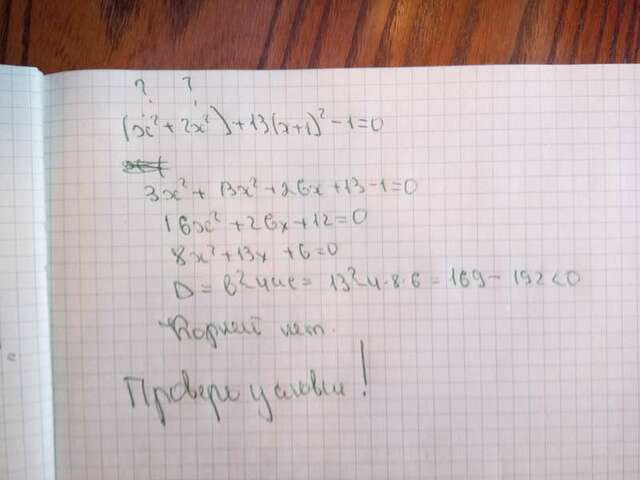 ? ?
(x² + 2x²) + 13(x+1)² - 1 = 0
3x² + 13x² + 26x + 13 - 1 = 0
16x² + 26x + 12 = 0
8x² + 13x + 6 = 0
D = b² 4ac = 13² 4·8·6 = 169 - 192 < 0
Корней нет.
Проверь условие!